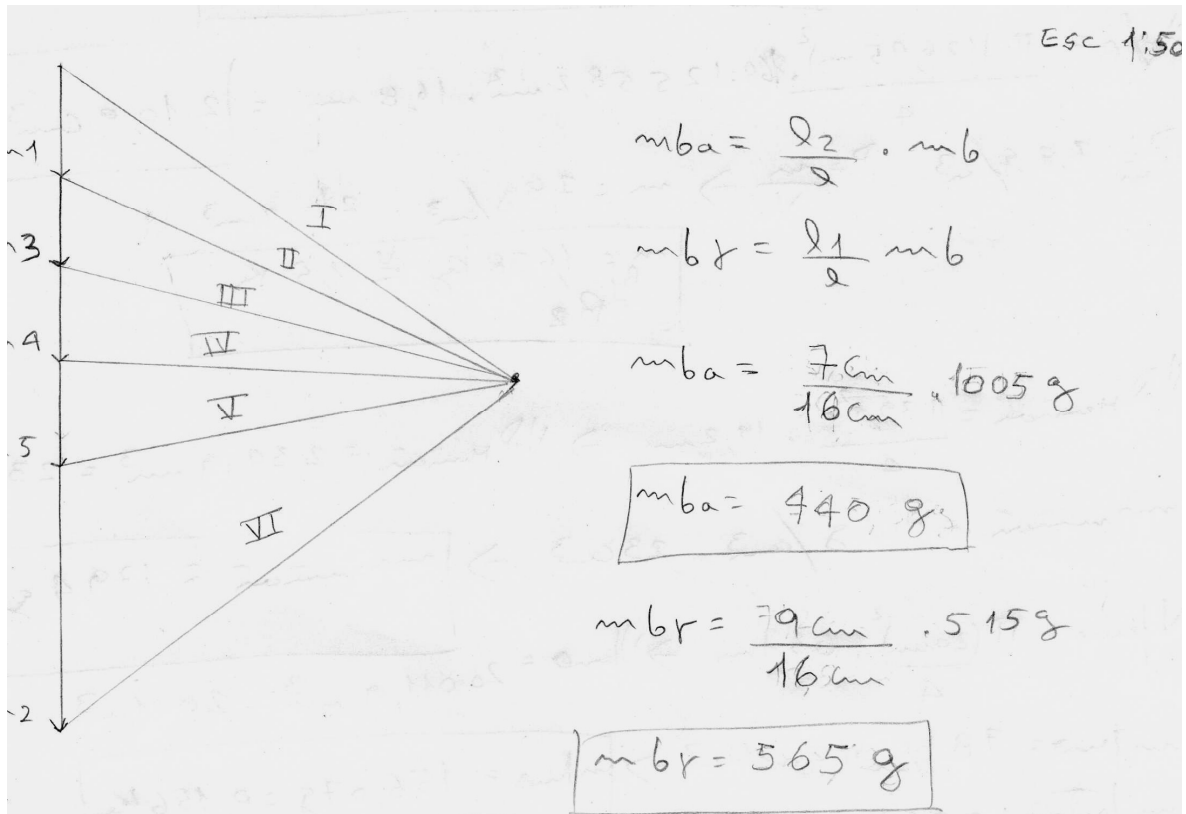 Esc 1:50
m1
I
II
m3
III
m4
IV
V
m5
VI
m2
mba = l2/l · mb
mbr = l1/l mb
mba = 7cm/16cm · 1005 g
mba = 440 g
mbr = 9cm/16cm · 515 g
mbr = 565 g